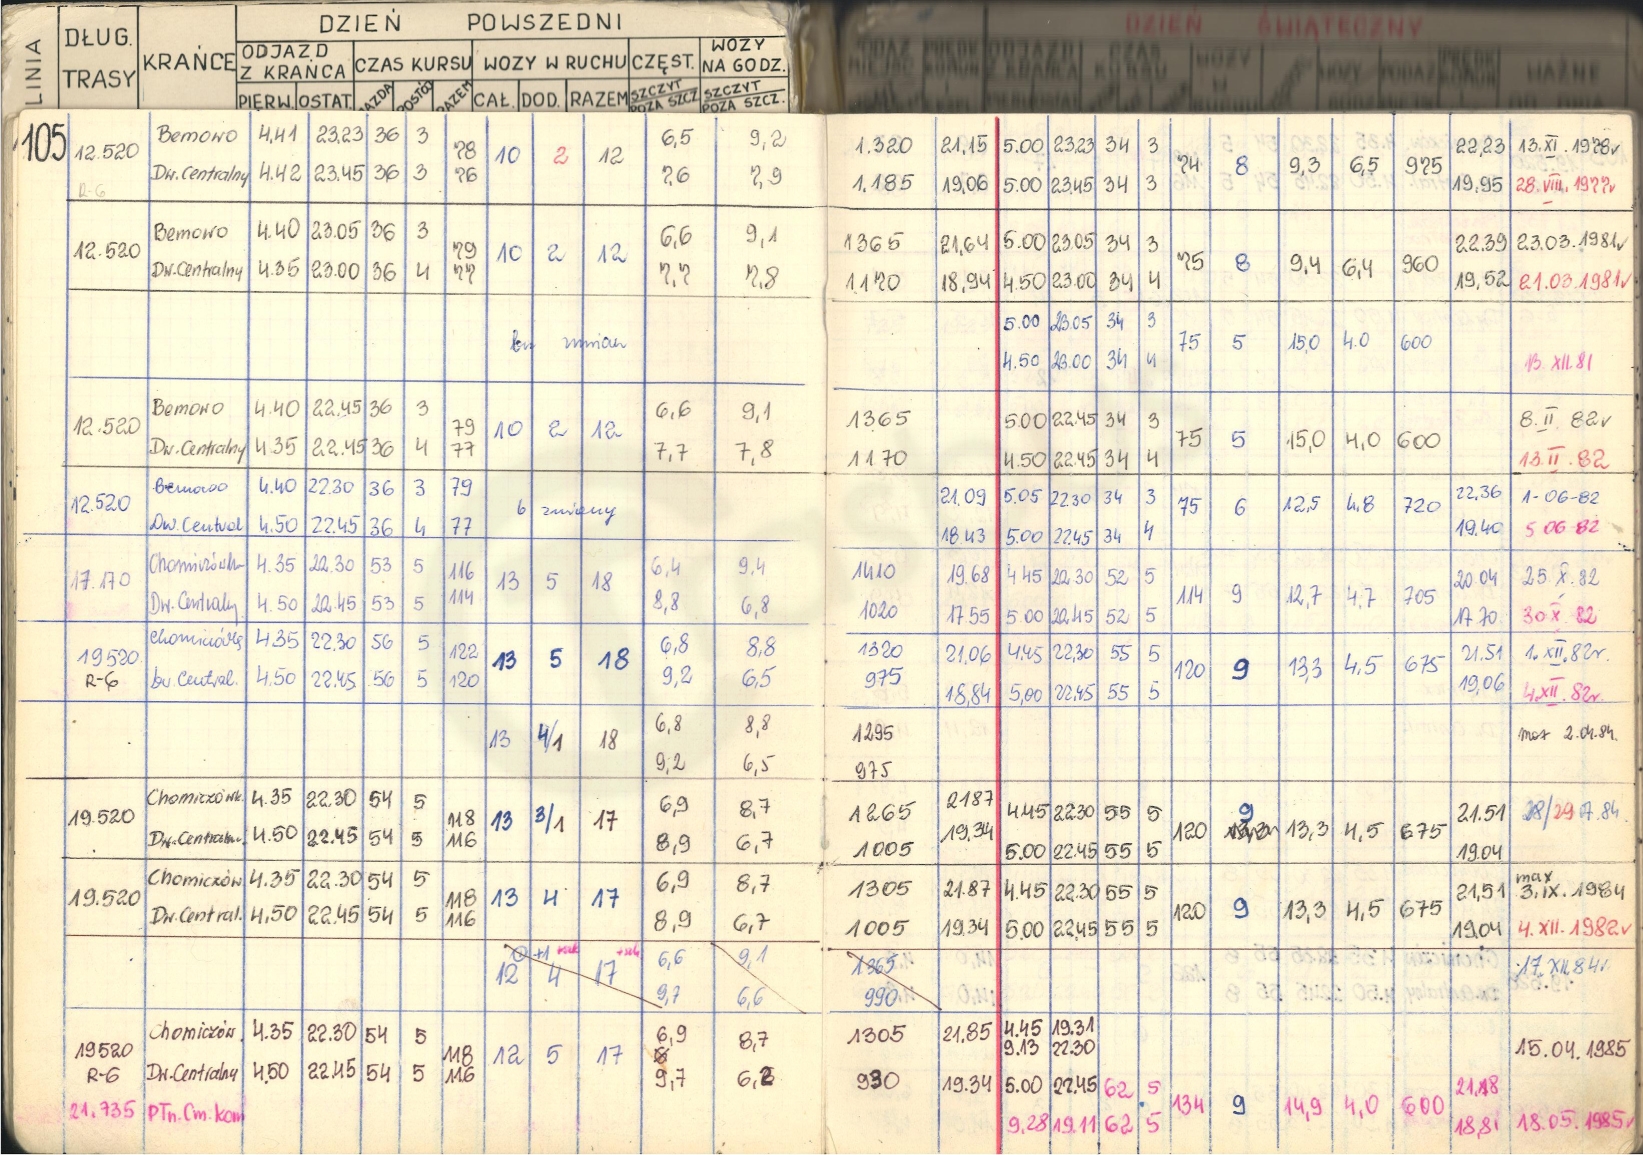 DZIEŃ POWSZEDNI
DZIEŃ ŚWIĄTECZNY
LINIA
DŁUG. TRASY
KRAŃCE
ODJAZD Z KRAŃCA
CZAS KURSU
WOZY W RUCHU
CZĘST.
WOZY NA GODZ.
PIERW. OSTAT. JAZDA POSTÓJ RAZEM CAŁ. DOD. RAZEM SZCZYT POZA SZCZ. SZCZYT POZA SZCZ.
WAŻNE
105
Bemowo 4,41 23,23 36 3 6,5 9,2 1.320 21,15 5.00 23.23 34 3 22,23 13.XI.1978r
12.520 78 10 2 12 74 8 9,3 6,5 975
Dw.Centralny 4.42 23.45 36 3 76 7,6 7,9 1.185 19,06 5.00 23.45 34 3 19,95 28.VIII.1977r
R-6
Bemowo 4.40 23.05 36 3 6,6 9,1 1365 21,64 5.00 23.05 34 3 22.39 23.03.1981r
12.520 79 10 2 12 75 8 9,4 6,4 960
Dw.Centralny 4.35 23.00 36 4 77 7,7 7,8 1170 18,94 4.50 23.00 34 4 19,52 21.03.1981r
5.00 23.05 34 3
bez zmian 75 5 15,0 4.0 600
4.50 23.00 34 4 13.XII.81
Bemowo 4.40 22.45 36 3 6,6 9,1 1365 5.00 22.45 34 3 8.II.82r
12.520 79 10 2 12 75 5 15,0 4,0 600
Dw.Centralny 4.35 22.45 36 4 77 7,7 7,8 1170 4.50 22.45 34 4 13.II.82
Bemowo 4.40 22.30 36 3 79 21.09 5.05 22.30 34 3 22,36 1-06-82
12.520 b zmiany 75 6 12,5 4,8 720
Dw.Central 4.50 22.45 36 4 77 18.43 5.00 22.45 34 4 19.40 5 06 82
Chomiczówka 4.35 22.30 53 5 116 6,4 9,4 1410 19.68 4.45 22.30 52 5 20.04 25.X.82
17.170 13 5 18 114 9 12,7 4,7 705
Dw.Centralny 4.50 22.45 53 5 114 8,8 6,8 1020 17.55 5.00 22.45 52 5 17.70 30 X 82
Chomiczówka 4.35 22.30 56 5 122 6,8 8,8 1320 21,06 4.45 22,30 55 5 21.51 1.XII.82r.
19520 13 5 18 120 9 13,3 4,5 675
R-6 Dw.Central. 4.50 22.45 56 5 120 9,2 6,5 975 18,84 5,00 22.45 55 5 19,06 4.XII.82r
6,8 8,8 1295
13 4/1 18 max 2.04.84.
9,2 6,5 975
Chomiczówk. 4.35 22.30 54 5 6,9 8,7 1265 21.87 4.45 22.30 55 5 9 21.51 28/29 07.84.
19.520 118 13 3/1 17 120 13,3 4,5 675
Dw.Centraln. 4.50 22.45 54 5 116 8,9 6,7 1005 19,34 5.00 22.45 55 5 19.04
Chomiczów 4.35 22.30 54 5 6,9 8,7 1305 21.87 4.45 22.30 55 5 21,51 max 3.IX.1984
19.520 118 13 4 17 120 9 13,3 4,5 675
Dw.Central. 4,50 22.45 54 5 116 8,9 6,7 1005 19.34 5,00 22,45 55 5 19,04 4.XII.1982r
6,6 9,1 1365 17.XII.84r.
12 4 17
9,7 6,6 990
Chomiczów. 4.35 22.30 54 5 6,9 8,7 1305 21,85 4.45 19.31
9.13 22.30
19520 118 12 5 17 15.04.1985
R-6 Dw.Centralny 4.50 22.45 54 5 116 9,7 6,2 930 19.34 5.00 22.45 62 5 21,48
134 9 14,9 4,0 600
21.735 PTn.Cm.kom 9,28 19.11 62 5 18,81 18.05.1985r